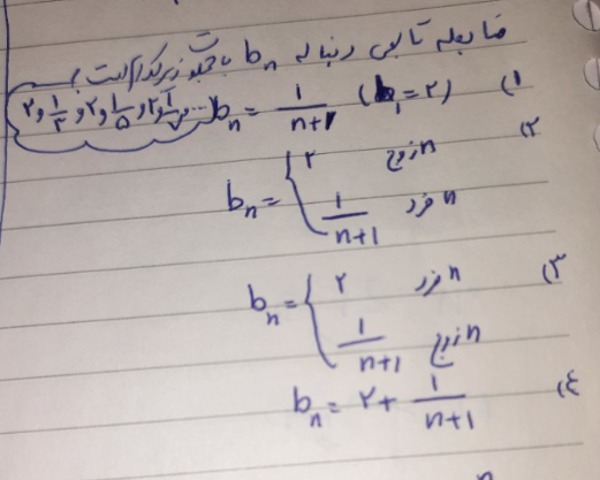 ضابطه تابعی دنباله bₙ با جملات زیر کدام است
۲, ۱/۳, ۲, ۱/۵, ۲, ۱/۷, ...
۱) bₙ = ۱/(n+۲) (b₁=۲)
۲) bₙ = { ۲ n زوج
۱/(n+۱) n فرد
۳) bₙ = { ۲ n فرد
۱/(n+۱) n زوج
۴) bₙ = ۲ + ۱/(n+۱)